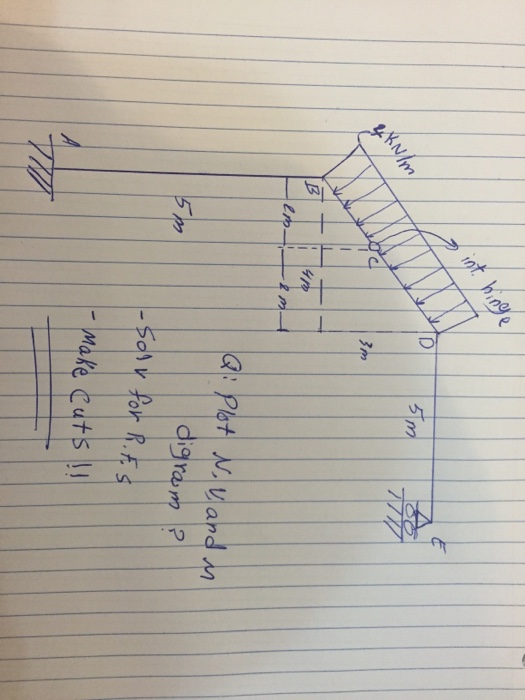 4 KN/m
int. hinge
A
B
C
D
E
5m
2m
2m
4m
3m
5m
Q: Plot N, V, and M
digram ?
- Solv for R.F.s
- Make cuts !!!